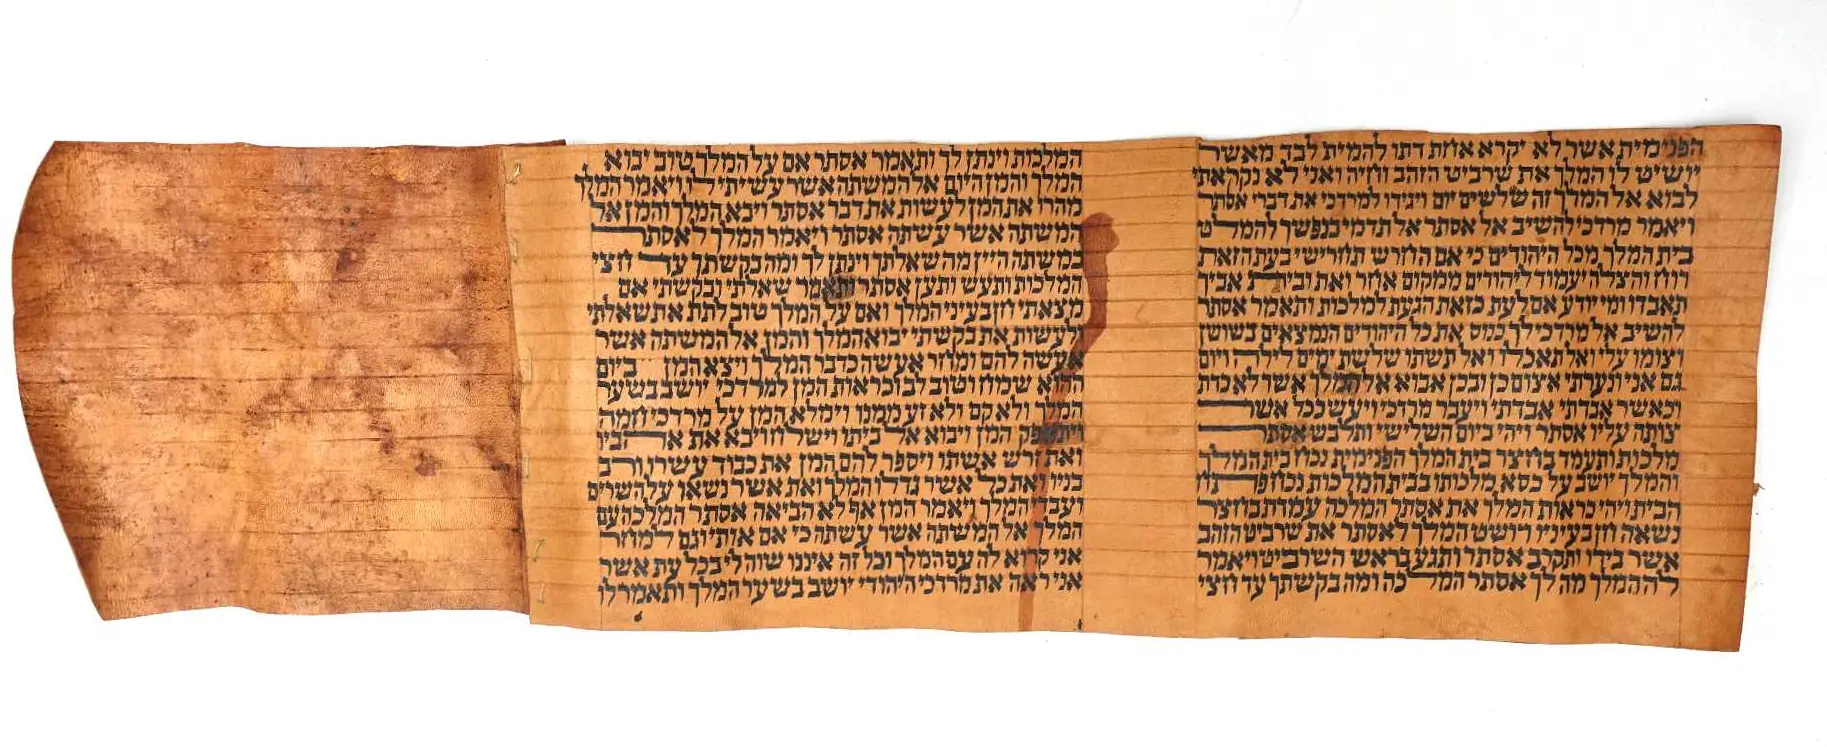 הפנימית אשר לא יקרא אחת דתו להמית לבד מאשר
יושיט לו המלך את שרביט הזהב וחיה ואני לא נקראתי
לבוא אל המלך זה שלשים יום ויגידו למרדכי את דברי אסתר
ויאמר מרדכי להשיב אל אסתר אל תדמי בנפשך להמלט
בית המלך מכל היהודים כי אם החרש תחרישי בעת הזאת
רוח והצלה יעמוד ליהודים ממקום אחר ואת ובית אביך
תאבדו ומי יודע אם לעת כזאת הגעת למלכות ותאמר אסתר
להשיב אל מרדכי לך כנוס את כל היהודים הנמצאים בשושן
וצומו עלי ואל תאכלו ואל תשתו שלשת ימים לילה ויום
גם אני ונערתי אצום כן ובכן אבוא אל המלך אשר לא כדת
וכאשר אבדתי אבדתי ויעבר מרדכי ויעש ככל אשר
צותה עליו אסתר ויהי ביום השלישי ותלבש אסתר
מלכות ותעמד בחצר בית המלך הפנימית נכח בית המלך
והמלך יושב על כסא מלכותו בבית המלכות נכח פתח
הבית ויהי כראות המלך את אסתר המלכה עמדת בחצר
נשאה חן בעיניו ויושט המלך לאסתר את שרביט הזהב
אשר בידו ותקרב אסתר ותגע בראש השרביט ויאמר
לה המלך מה לך אסתר המלכה ומה בקשתך עד חצי
המלכות וינתן לך ותאמר אסתר אם על המלך טוב יבוא
המלך והמן היום אל המשתה אשר עשיתי לו ויאמר המלך
מהרו את המן לעשות את דבר אסתר ויבא המלך והמן אל
המשתה אשר עשתה אסתר ויאמר המלך לאסתר
במשתה היין מה שאלתך וינתן לך ומה בקשתך עד חצי
המלכות ותעש ותען אסתר ותאמר שאלתי ובקשתי אם
מצאתי חן בעיני המלך ואם על המלך טוב לתת את שאלתי
ולעשות את בקשתי יבוא המלך והמן אל המשתה אשר
אעשה להם ומחר אעשה כדבר המלך ויצא המן ביום
ההוא שמח וטוב לב וכראות המן את מרדכי יושב בשער
המלך ולא קם ולא זע ממנו וימלא המן על מרדכי חמה
ויתאפק המן ויבוא אל ביתו וישלח ויבא את אהביו
ואת זרש אשתו ויספר להם המן את כבוד עשרו ורב
בניו ואת כל אשר גדלו המלך ואת אשר נשאו על השרים
ועבדי המלך ויאמר המן אף לא הביאה אסתר המלכה עם
המלך אל המשתה אשר עשתה כי אם אותי וגם למחר
אני קרוא לה עם המלך וכל זה איננו שוה לי בכל עת אשר
אני ראה את מרדכי היהודי יושב בשער המלך ותאמר לו